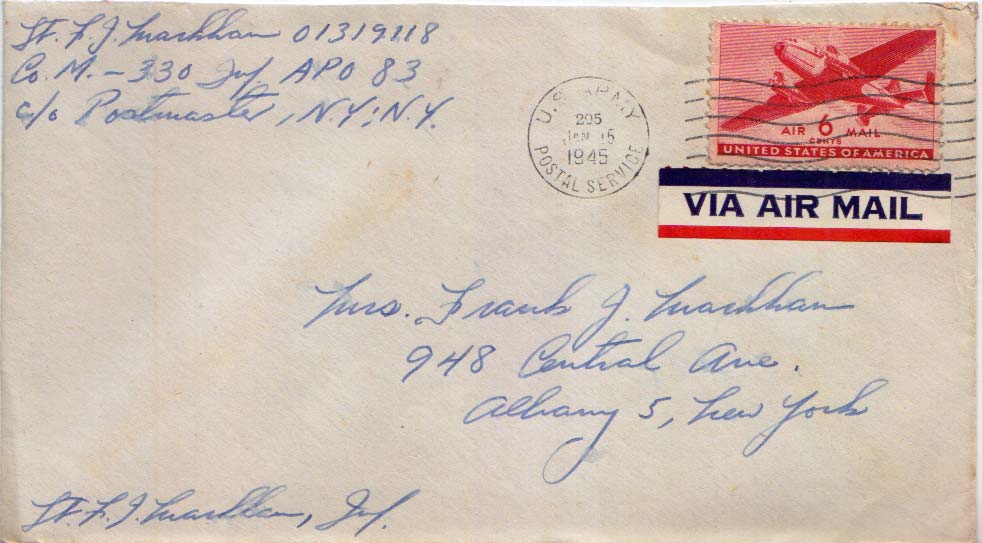 Lt. F. J. Markham 01319118
Co. M. - 330 Inf. APO 83
c/o Postmaster, N.Y., N.Y.
U.S. ARMY
205
JAN 15
1945
POSTAL SERVICE
AIR 6 MAIL
CENTS
UNITED STATES OF AMERICA
VIA AIR MAIL
Mrs. Frank J. Markham
948 Central Ave.
Albany 5, New York
Lt. F. J. Markham, Inf.